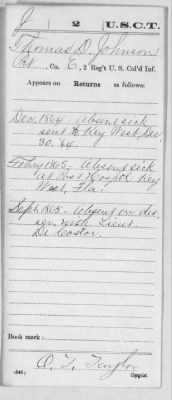 J | 2 | U.S.C.T.
Thomas D. Johnson
Pvt, Co. E, 2 Reg't U. S. Col'd Inf.
Appears on Returns as follows:
Dec. 1864 Absent sick
sent to Key West, Dec.
30, '64.
Feby 1865, Absent sick
at Post Hospital Key
West, Fla.
Sept 1865 - Absent on de.
ser. with Lieut.
De Castor.
Book mark:
O. T. Taylor
(546) Copyist.